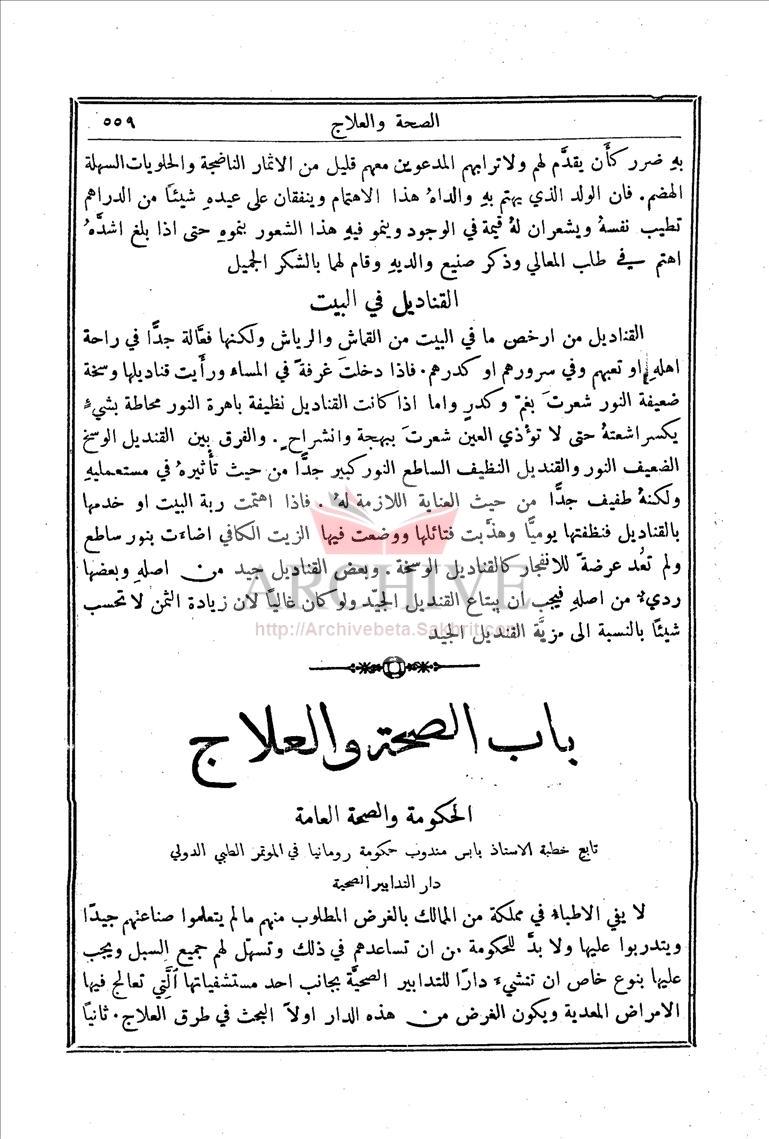 الصحة والعلاج ٥٥٩
بهِ ضرر كأَن يقدَّم لهم ولاترابهم المدعوين معهم قليل من الاثمار الناضجة والحلويات السهلة
الهضم. فان الولد الذي يهتم بهِ والداهُ هذا الاهتمام وينفقان على عيدهِ شيئًا من الدراهم
تطيب نفسهُ ويشعران لهُ قيمة في الوجود وينمو فيهِ هذا الشعور بنموهِ حتى اذا بلغ اشدَّهُ
اهتم في طلب المعالي وذكر صنيع والديهِ وقام لهما بالشكر الجميل
القناديل في البيت
القناديل من ارخص ما في البيت من القماش والرياش ولكنها فعَّالة جدًّا في راحة
اهلهِ او تعبهم وفي سرورهم او كدرهم. فاذا دخلتَ غرفةً في المساء ورأَيت قناديلها وسخة
ضعيفة النور شعرتَ بغمّ وكدرٍ واما اذا كانت القناديل نظيفة باهرة النور محاطة بشيءٍ
يكسر اشعتهُ حتى لا تؤذي العين شعرتَ ببهجة وانشراحٍ. والفرق بين القنديل الوسخ
الضعيف النور والقنديل النظيف الساطع النور كبير جدًّا من حيث تأثيرهُ في مستعمليهِ
ولكنهُ طفيف جدًّا من حيث العناية اللازمة لهُ. فاذا اهتمت ربة البيت او خدمها
بالقناديل فنظفتها يوميًّا وهذَّبت فتائلها ووضعت فيها الزيت الكافي اضاءَت بنور ساطع
ولم تعُد عرضةً للانفجار كالقناديل الوسخة. وبعض القناديل جيد من اصلهِ وبعضها
رديءٌ من اصلهِ فيجب أن يبتاع القنديل الجيّد ولو كان غاليًا لان زيادة الثمن لا تحسب
شيئًا بالنسبة الى مزيَّة القنديل الجيد
ARCHIVE
http://Archivebeta.Sakhrit.com
باب الصحة والعلاج
الحكومة والصحة العامة
تابع خطبة الاستاذ بابس مندوب حكومة رومانيا في الموتمر الطبي الدولي
دار التدابير الصحية
لا يفي الاطباء في مملكة من الممالك بالغرض المطلوب منهم ما لم يتعلموا صناعتهم جيدًا
ويتدربوا عليها ولا بدَّ للحكومة من ان تساعدهم في ذلك وتسهّل لهم جميع السبل ويجب
عليها بنوع خاص ان تنشيء دارًا للتدابير الصحيَّة بجانب احد مستشفياتها الَّتي تعالج فيها
الامراض المعدية ويكون الغرض من هذه الدار اولاً البحث في طرق العلاج. ثانيًا